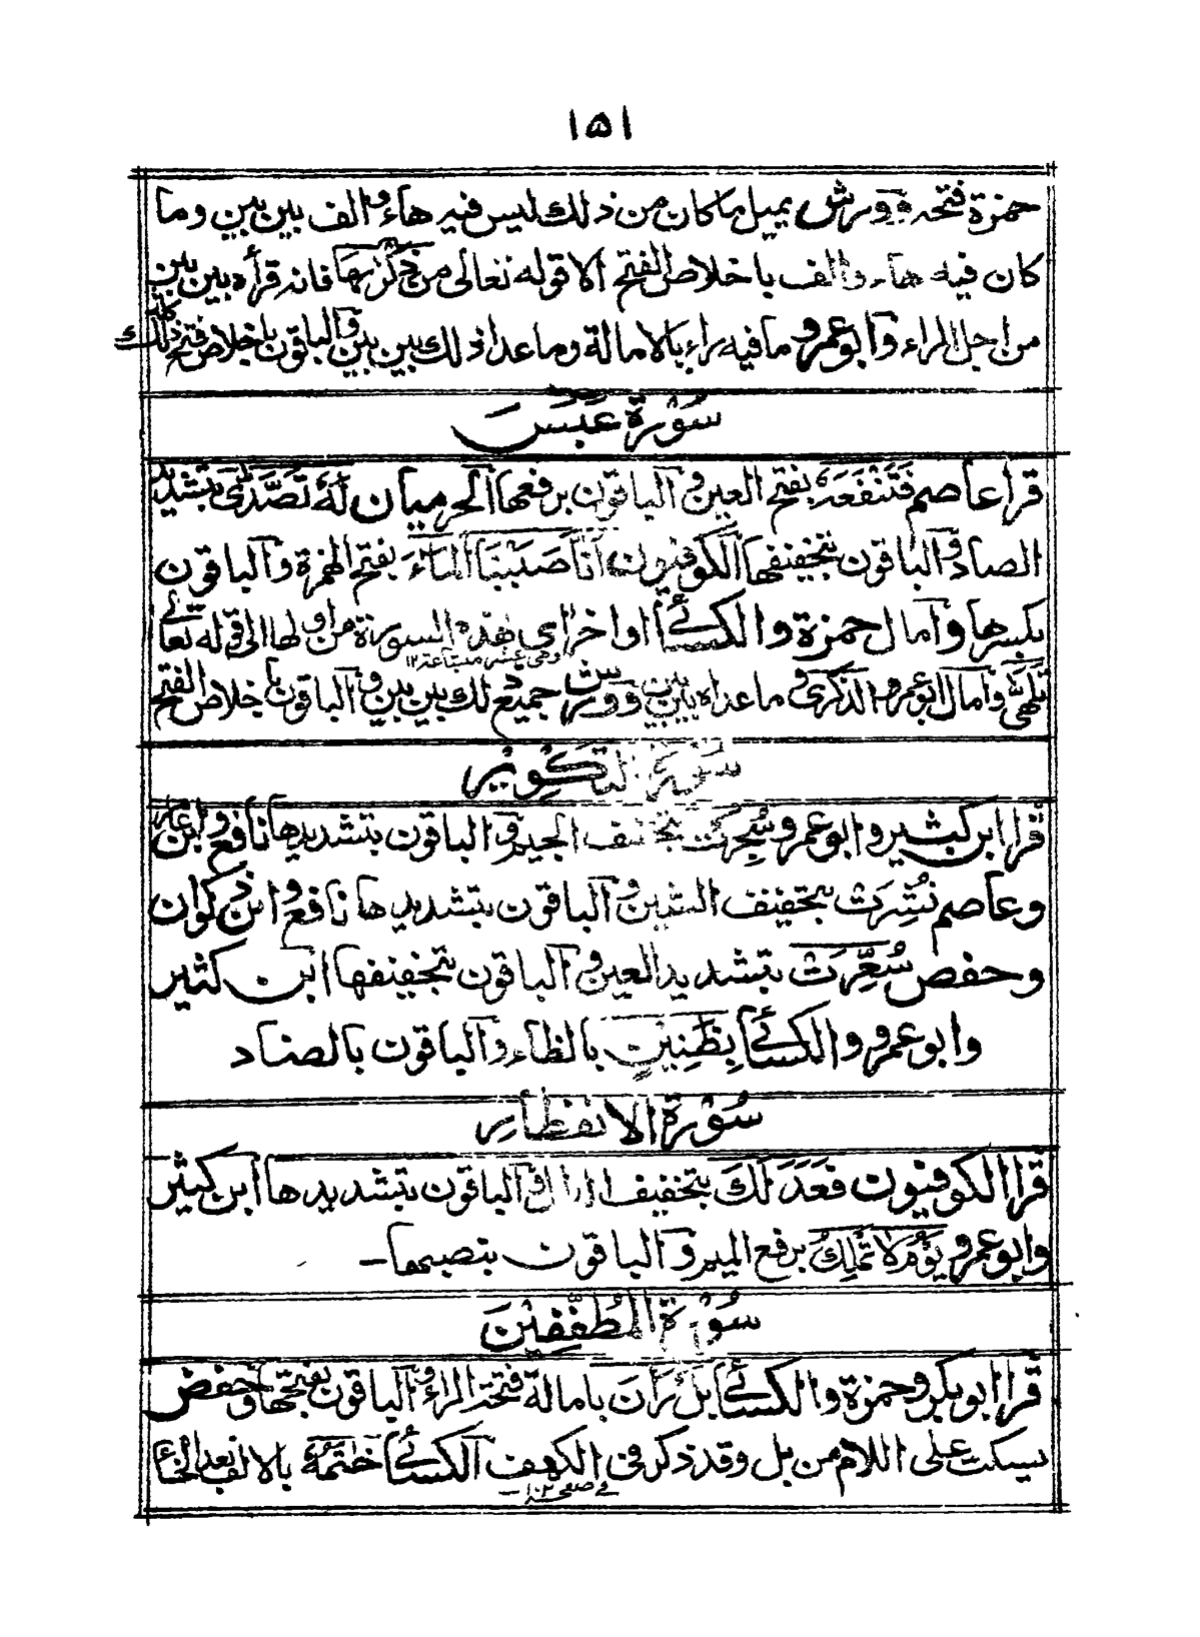 ۱۵۱
حمزة فتحه وورش يميل ما كان من ذلك ليس فيه هاء والف بين بين وما
كان فيه هاء والف باخلاص الفتح الا قوله تعالى من ذكرىها فانه قرأه بين بين
من اجل الراء وابو عمرو ما فيه راء بالامالة وما عدا ذلك بين بين والباقون باخلاص فتح ذلك كله
سُوْرَة عَبَسَ
قرا عاصم فَتَنْفَعَهُ بفتح العين والباقون برفعها الحرميان لَهُ تَصَّدّٰى بتشديد
الصاد والباقون بتخفيفها الكوفيون اَنَّا صَبَبْنَا الْمَآءَ بفتح الهمزة والباقون
بكسرها وامال حمزة والكسائى اواخر اى هذه السورة من اولها الى قوله تعالى
وهى عشر متتابعة ۱۲
تَلَهّٰى وامال ابو عمرو الذكرى وما عداه بين بين وورش جميع ذلك بين بين والباقون باخلاص الفتح
سُوْرَة التَّكْوِيْر
قرا ابن كثير وابو عمرو سُجِرَتْ بتخفيف الجيم والباقون بتشديدها نافع وابن عامر
وعاصم نُشِرَتْ بتخفيف الشين والباقون بتشديدها نافع وابن ذكوان
وحفص سُعِّرَتْ بتشديد العين والباقون بتخفيفها ابن كثير
وابو عمرو والكسائى بِظَنِيْنٍ بالظاء والباقون بالضاد
سُوْرَة الْاِنْفِطَارِ
قرا الكوفيون فَعَدَلَكَ بتخفيف الدال والباقون بتشديدها ابن كثير
وابو عمرو يَوْمُ لَا تَمْلِكُ برفع الميم والباقون بنصبها -
سُوْرَة الْمُطَفِّفِيْنَ
قرا ابو بكر وحمزة والكسائى بَلْ رَانَ بامالة فتحة الراء والباقون بفتحها وحفص
يسكت على اللام من بل وقد ذكر فى الكهف الكسائى خَاتَمُهُ بالالف بعد الخاء
فى صفحه ۱۰۲